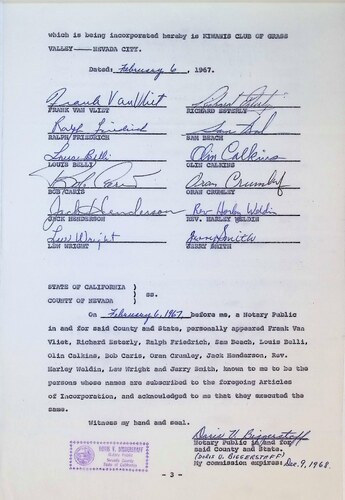 which is being incorporated hereby is KIWANIS CLUB OF GRASS
VALLEY——NEVADA CITY.
Dated: February 6, 1967.
Frank VanVliet
FRANK VAN VLIET
Richard Esterly
RICHARD ESTERLY
Ralph Friedrich
RALPH/FRIEDRICH
Sam Beach
SAM BEACH
Louis Belli
LOUIS BELLI
Olin Calkins
OLIN CALKINS
Bob Caris
BOB/CARIS
Oran Crumley
ORAN CRUMLEY
Jack Henderson
JACK HENDERSON
Rev Harley Weldin
REV. HARLEY WELDIN
Lew Wright
LEW WRIGHT
Jerry Smith
JERRY SMITH
STATE OF CALIFORNIA )
) ss.
COUNTY OF NEVADA )
On February 6, 1967 before me, a Notary Public
in and for said County and State, personally appeared Frank Van
Vliet, Richard Esterly, Ralph Friedrich, Sam Beach, Louis Belli,
Olin Calkins, Bob Caris, Oran Crumley, Jack Henderson, Rev.
Harley Weldin, Lew Wright and Jerry Smith, known to me to be the
persons whose names are subscribed to the foregoing Articles
of Incorporation, and acknowledged to me that they executed the
same.
Witness my hand and seal.
Doris V. Biggerstaff
Notary Public in and for
said County and State.
(DORIS V. BIGGERSTAFF)
My commission expires: Dec. 9, 1968.
DORIS V. BIGGERSTAFF
Notary Public
Nevada County
State of California
- 3 -